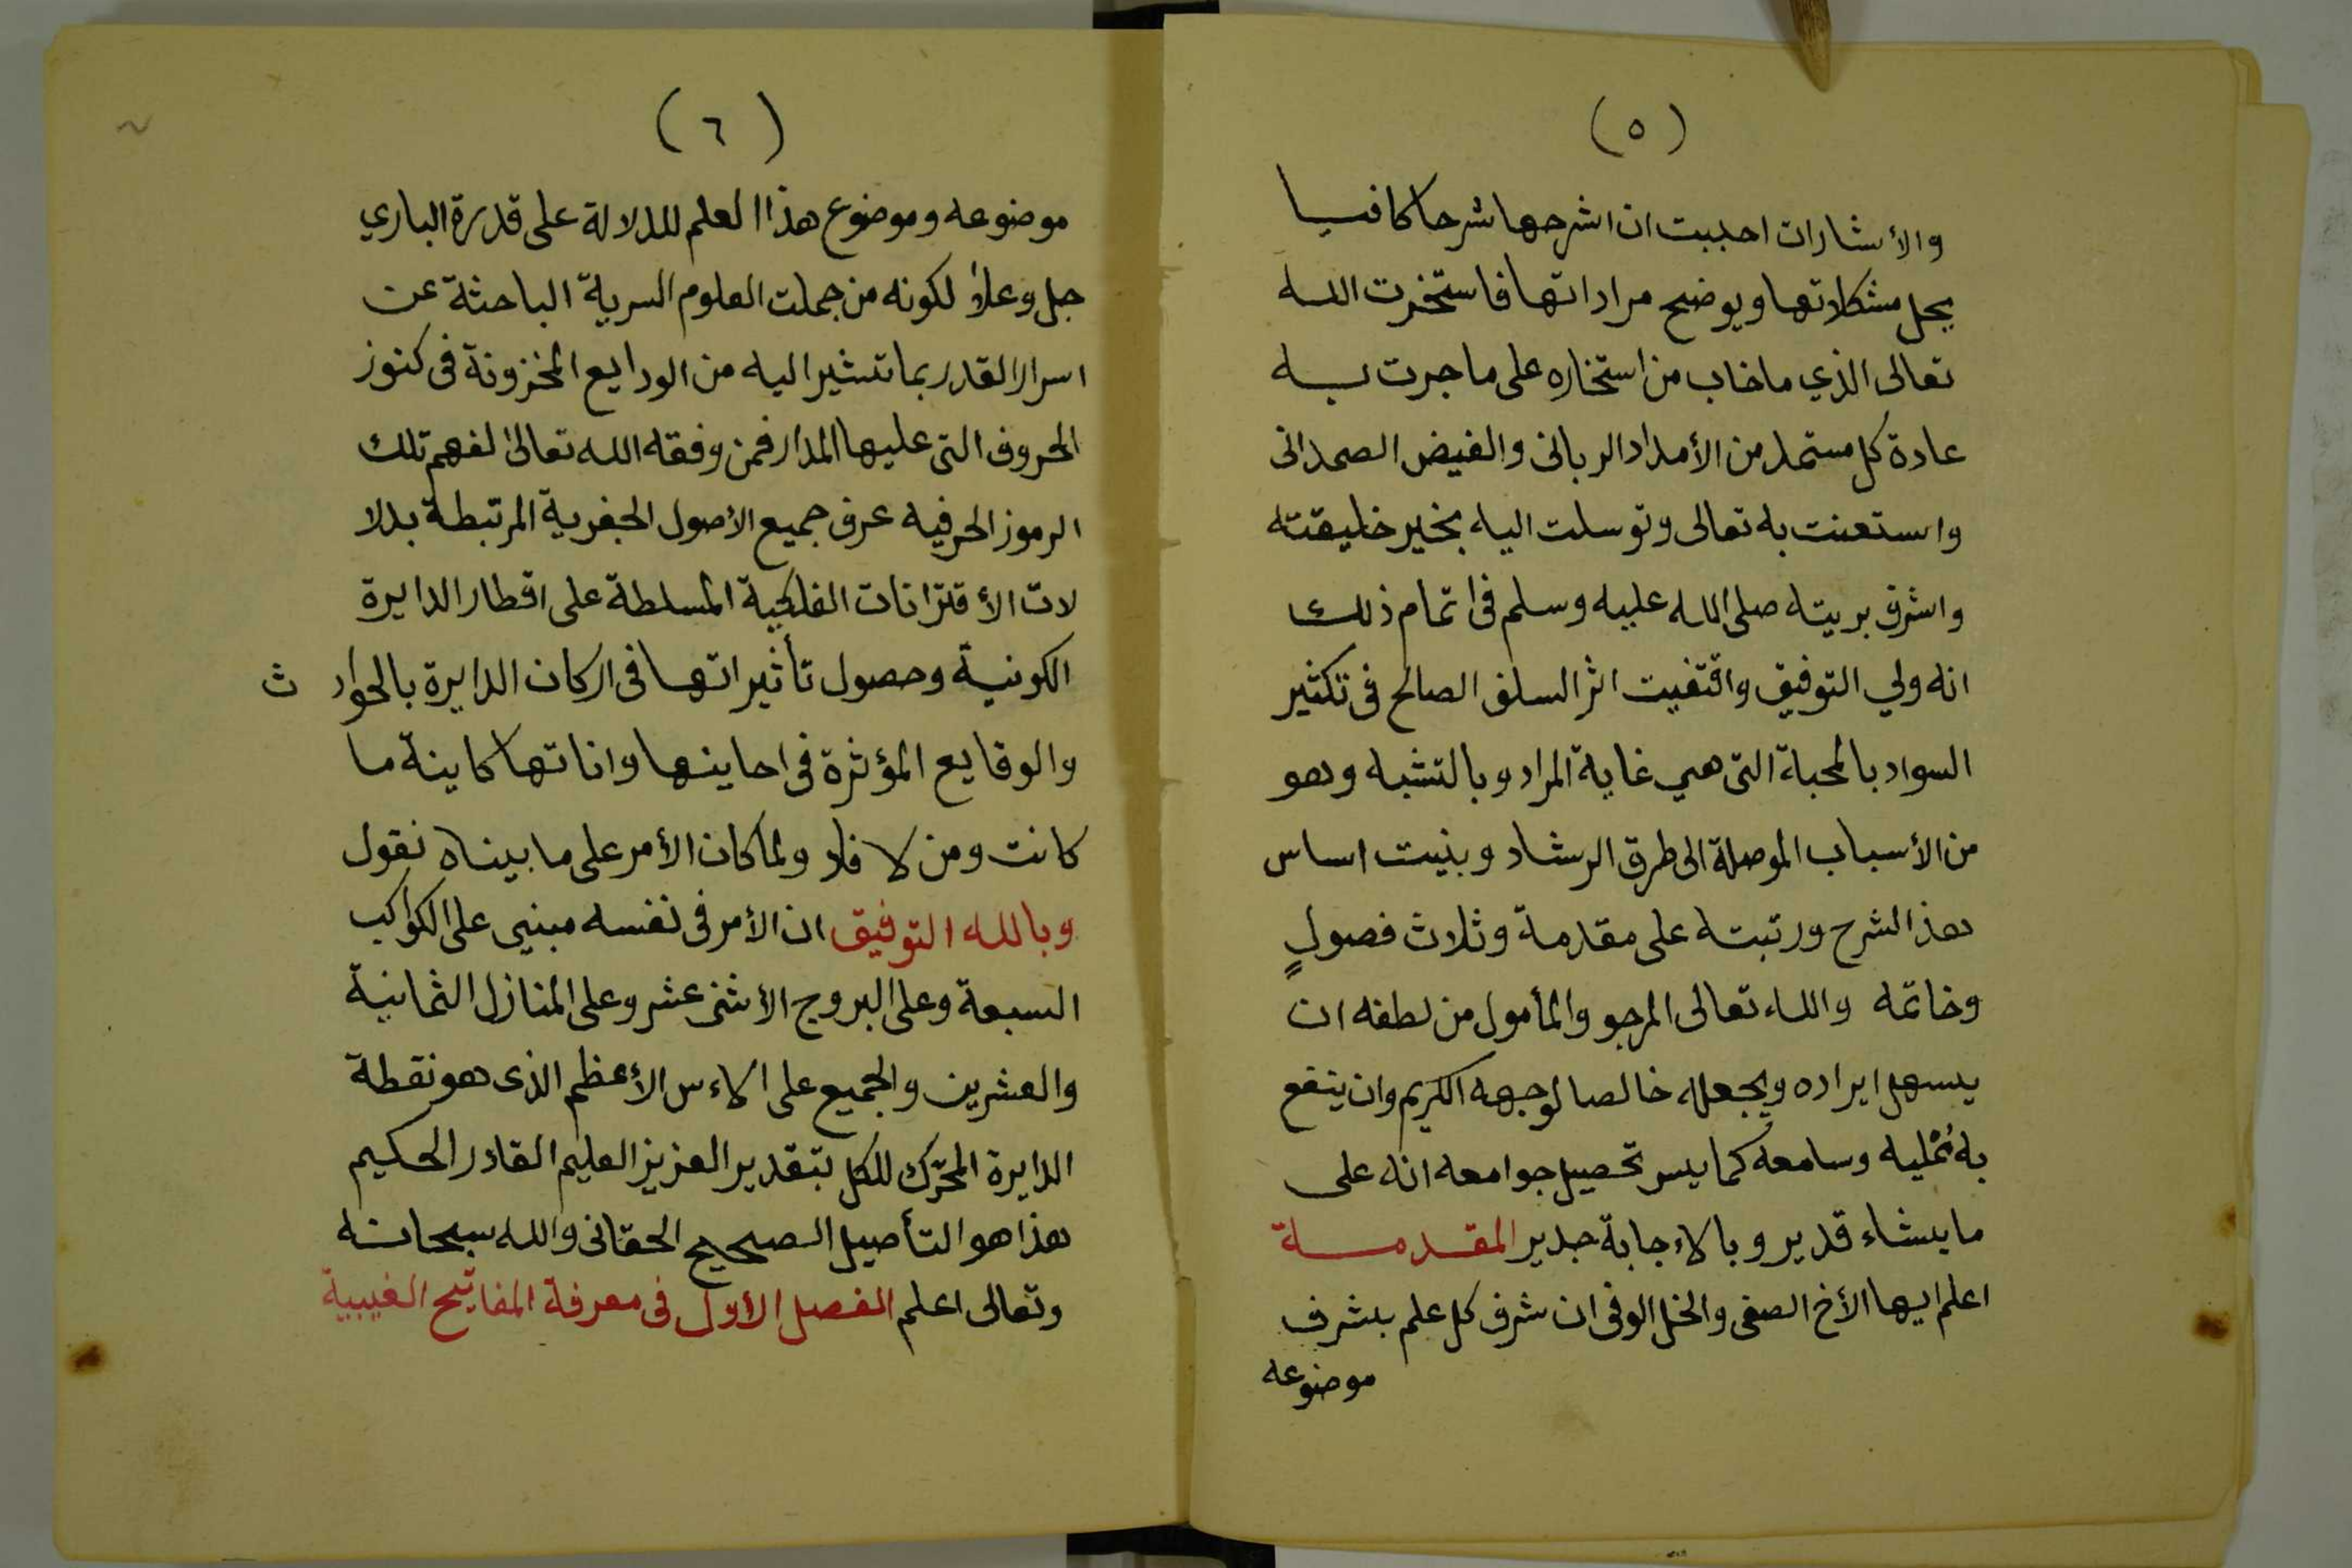 (٥)
والأشارات احببت ان اشرحها شرحا كافيا
يحل مشكلاتها ويوضح مراداتها فاستخرت الله
تعالى الذي ما خاب من استخاره على ما جرت به
عادة كل مستمد من الأمداد الربانى والفيض الصمدانى
واستعنت به تعالى وتوسلت اليه بخير خليقته
واشرف بريته صلى الله عليه وسلم فى اتمام ذلك
انه ولي التوفيق واقتفيت اثر السلف الصالح فى تكثير
السواد بالمحبة التى هي غاية المراد وبالتشبه وهو
من الأسباب الموصلة الى طرق الرشاد وبنيت اساس
هذا الشرح ورتبته على مقدمة وثلاث فصولٍ
وخاتمه والله تعالى المرجو والمأمول من لطفه ان
يسهل ايراده ويجعله خالصا لوجهه الكريم وان ينفع
به مُمْليه وسامعه كما يسر تحصيل جوامعه انه على
ما يشاء قدير وبالاءجابة جدير المقدمة
اعلم ايها الأخ الصفى والخل الوفى ان شرف كل علم بشرف
موضوعه
(٦)
موضوعه وموضوع هذا العلم للدلالة على قدرة الباري
جل وعلا لكونه من جملت العلوم السرية الباحثة عن
اسرار القدر بما تشير اليه من الودايع المخزونة فى كنوز
الحروف التى عليها المدار فمن وفقه الله تعالى لفهم تلك
الرموز الحرفيه عرف جميع الأصول الجفرية المرتبطة بدلا
لات الأقترانات الفلكية المسلطة على اقطار الدايرة
الكونية وحصول تأثيراتها فى اركان الدايرة بالحواد ث
والوقايع المؤثرة فى احاينها واناتها كاينة ما
كانت ومن لا فلا ولما كان الأمر على ما بيناه نقول
وبالله التوفيق ان الأمر فى نفسه مبنيى على الكواكب
السبعة وعلى البروج الأثنى عشر وعلى المنازل الثمانية
والعشرين والجميع على الاءس الأعظم الذى هو نقطة
الدايرة المحرّك للكل بتقدير العزيز العليم القادر الحكيم
هذا هو التأصيل الصحيح الحقانى والله سبحانه
وتعالى اعلم الفصل الأول فى معرفة المفاتيح الغيبية